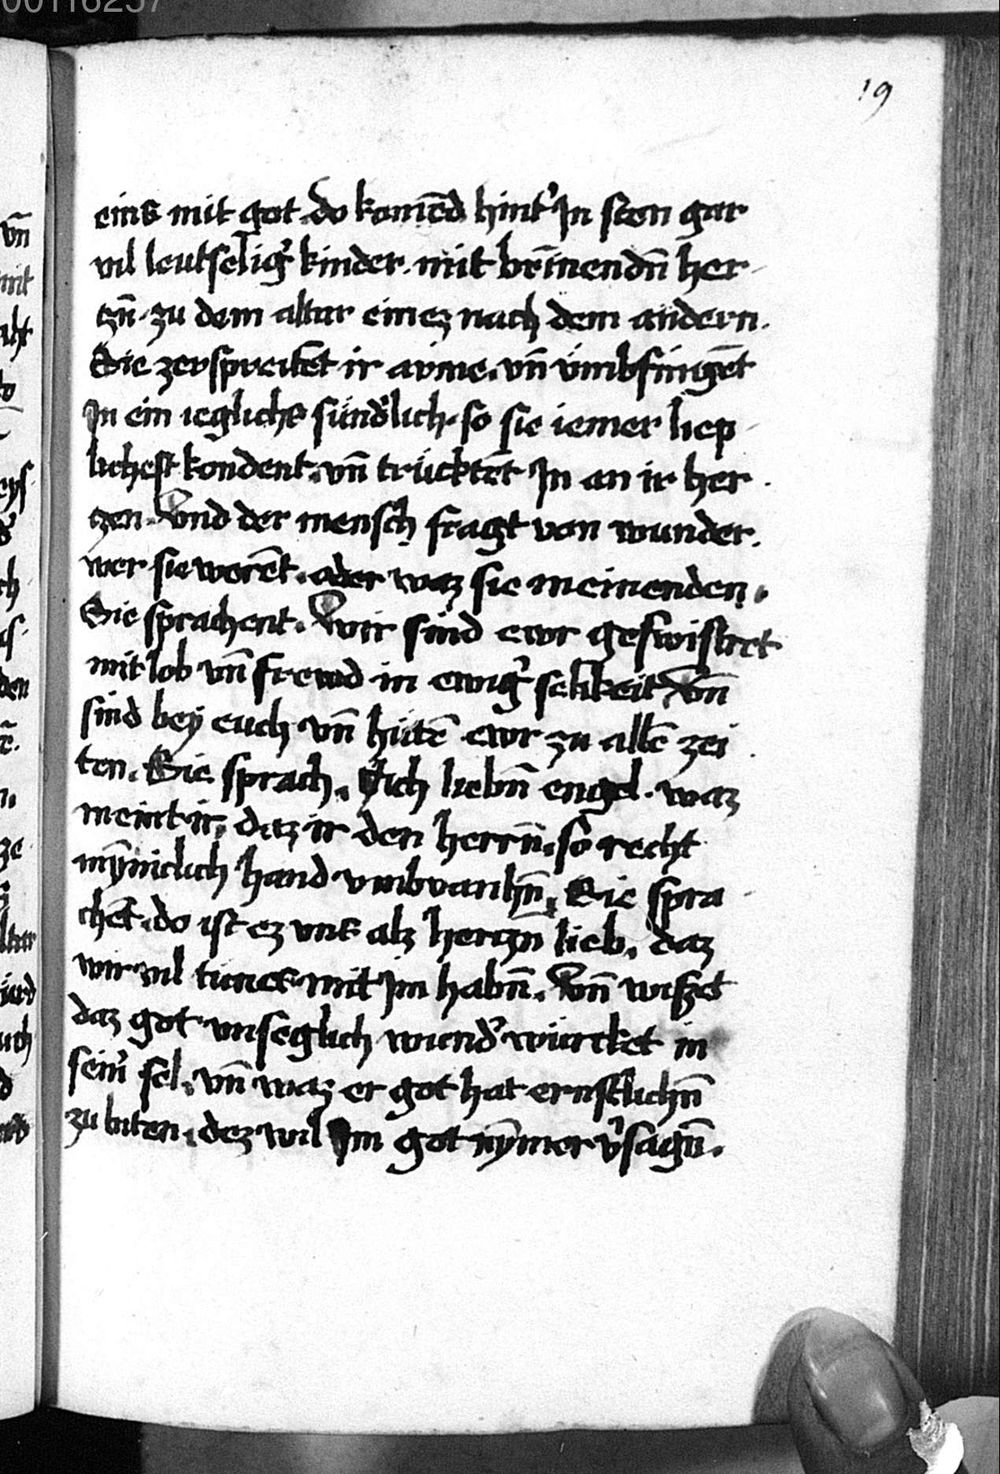 00116257
19
eins mit got. do komēd hint' In sten gar
vil leutselig' kinder. mit brīnendn̄ her
czn̄. zu dem altar einez nach dem andern.
Sie zerspreitet̄ ir arme. vn̄ vmbfingēt
In ein ieglichs sünd'lich. so sie iemer liep
lichest kondent. vn̄ trucktēt In an ir her
zen. Vnd der mensch fragt von wunder.
wer sie werēt. oder waz sie meinenden.
Sie sprachent. Wir sind ewr geswistret
mit lob vn̄ frewd in ewig' selikeit vn̄
sind bey euch vn̄ hütē ewr zu allē zei
ten. Sie sprach. Ach liebn̄ engel. waz
meint ir, daz ir den herrn̄. so recht
mȳniclich hand vmbvanhn̄. Sie spra
chēt. do ist ez vns alz herczn lieb, daz
wir vil tunes mit Im habn̄. Vn̄ wiszet
daz got vnseglich wund' würcket in
sein' sel, vn̄ waz er got hat ernstlichn̄
zu biten, dez wil Im got nȳmer v'sagn̄.